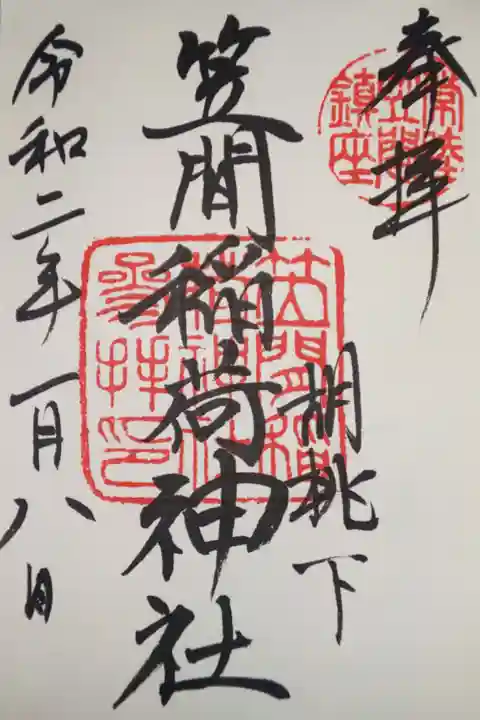 奉拝
常陸
笠間
鎮座
胡桃下
笠間稲荷神社
笠間稲
荷神社
参拝印
令和二年一月八日